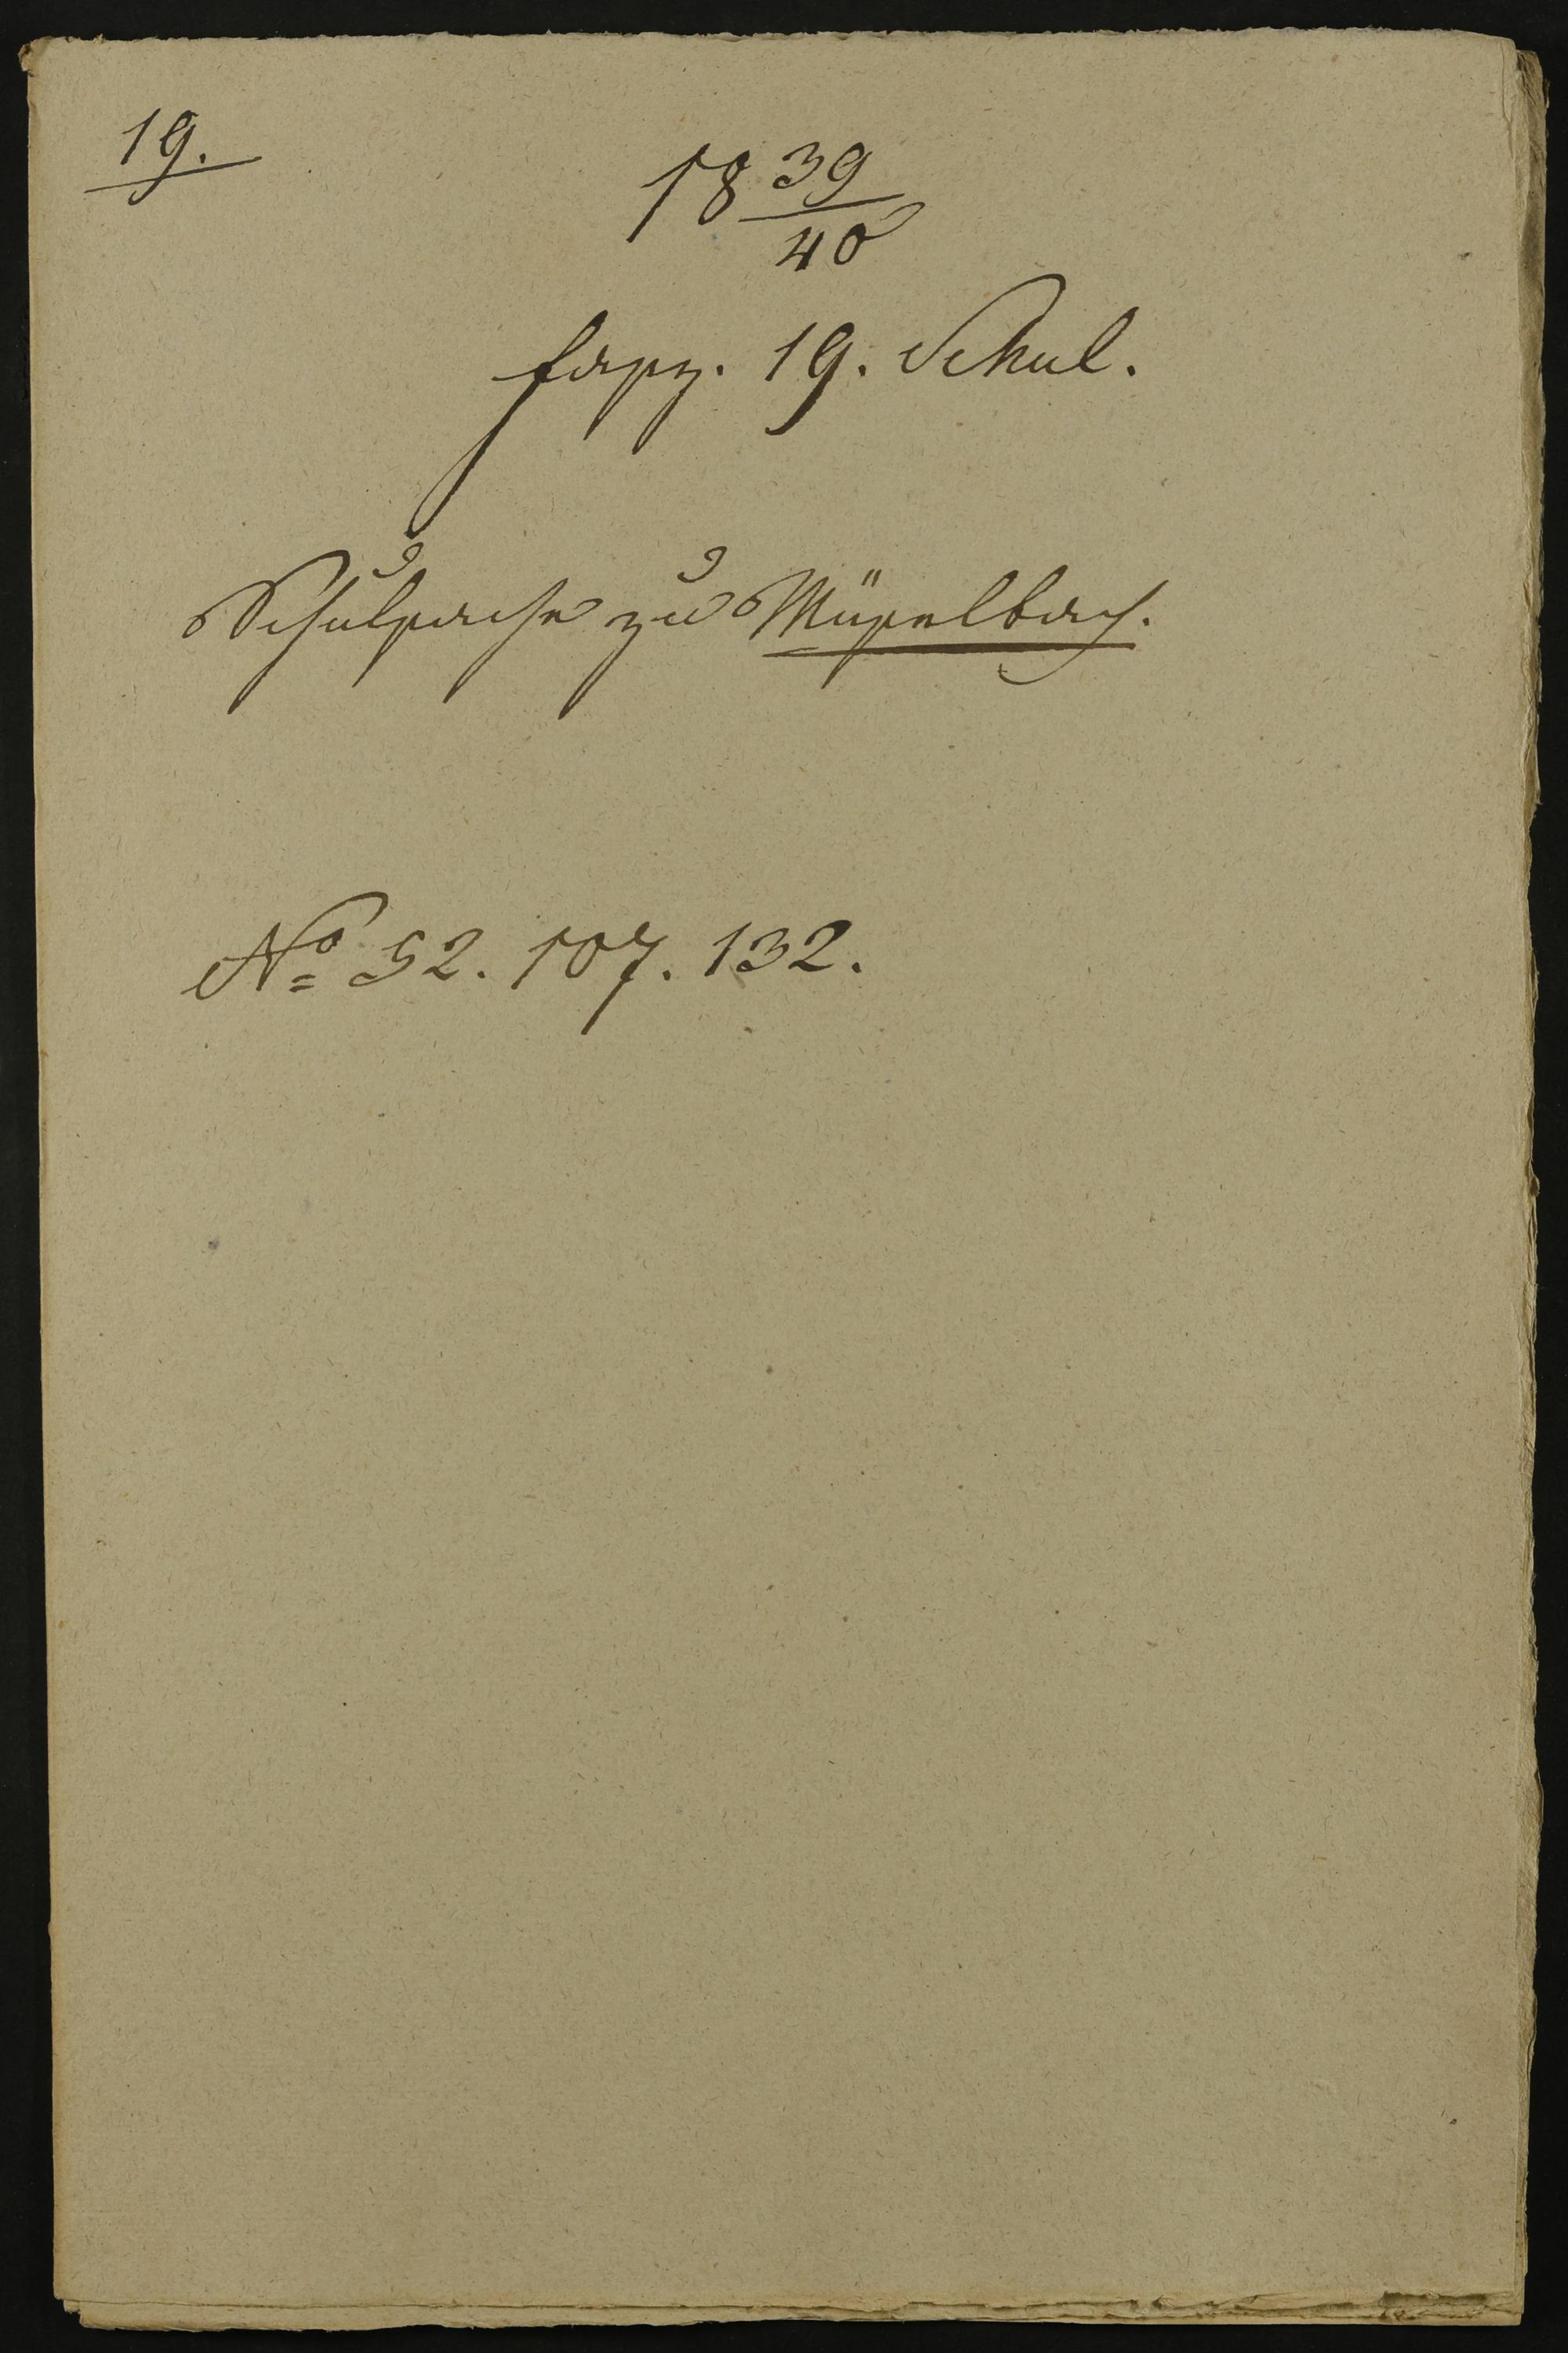 19.
18 39/40
fasz. 19. Schul.
Schulsache zu Müselbach.
No 52. 107. 132.